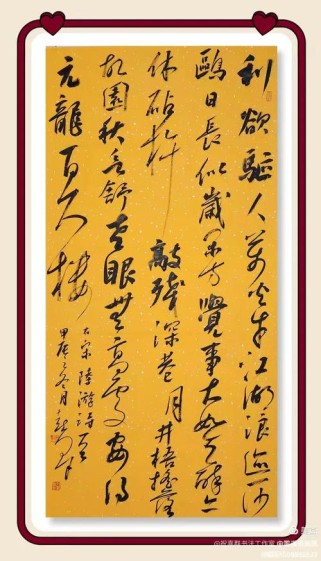 利欲驅人萬火牛江湖浪迹一沙
鷗日長似歲閑方覺事大如天醉亦
休砧杵敲殘深巷月井梧搖落
故園秋欲舒老眼無高處安得
元龍百尺樓
宋陸游詩